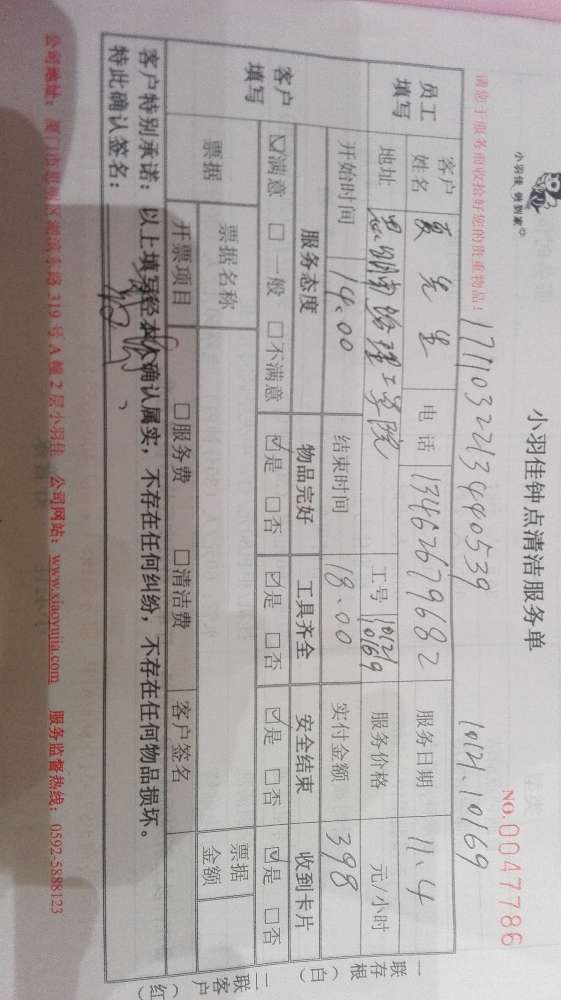 小羽佳 到家
小羽佳钟点清洁服务单
NO.00047786
请您于服务前收拾好您的贵重物品！
17110322134440539
10121.10169
员工填写
客户姓名 夏先生 电话 13462679682 服务日期 11.4
地址 思明南路理工学院 工号 10121 10169 服务价格 元/小时
开始时间 14.00 结束时间 18.00 实付金额 398
客户填写
服务态度 物品完好 工具齐全 安全结束 收到卡片
☑满意 □一般 □不满意 ☑是 □否 ☑是 □否 ☑是 □否 ☑是 □否
票据 票据名称 票据金额
开票项目 □服务费 □清洁费 客户签名
客户特别承诺：以上填写经本人确认属实，不存在任何纠纷，不存在任何物品损坏。
特此确认签名：
公司地址：厦门市思明区湖滨东路 319 号 A 幢 2 层小羽佳 公司网站：www.xiaoyujia.com 服务监督热线：0592-5888123
一联存根（白）
二联客户（红